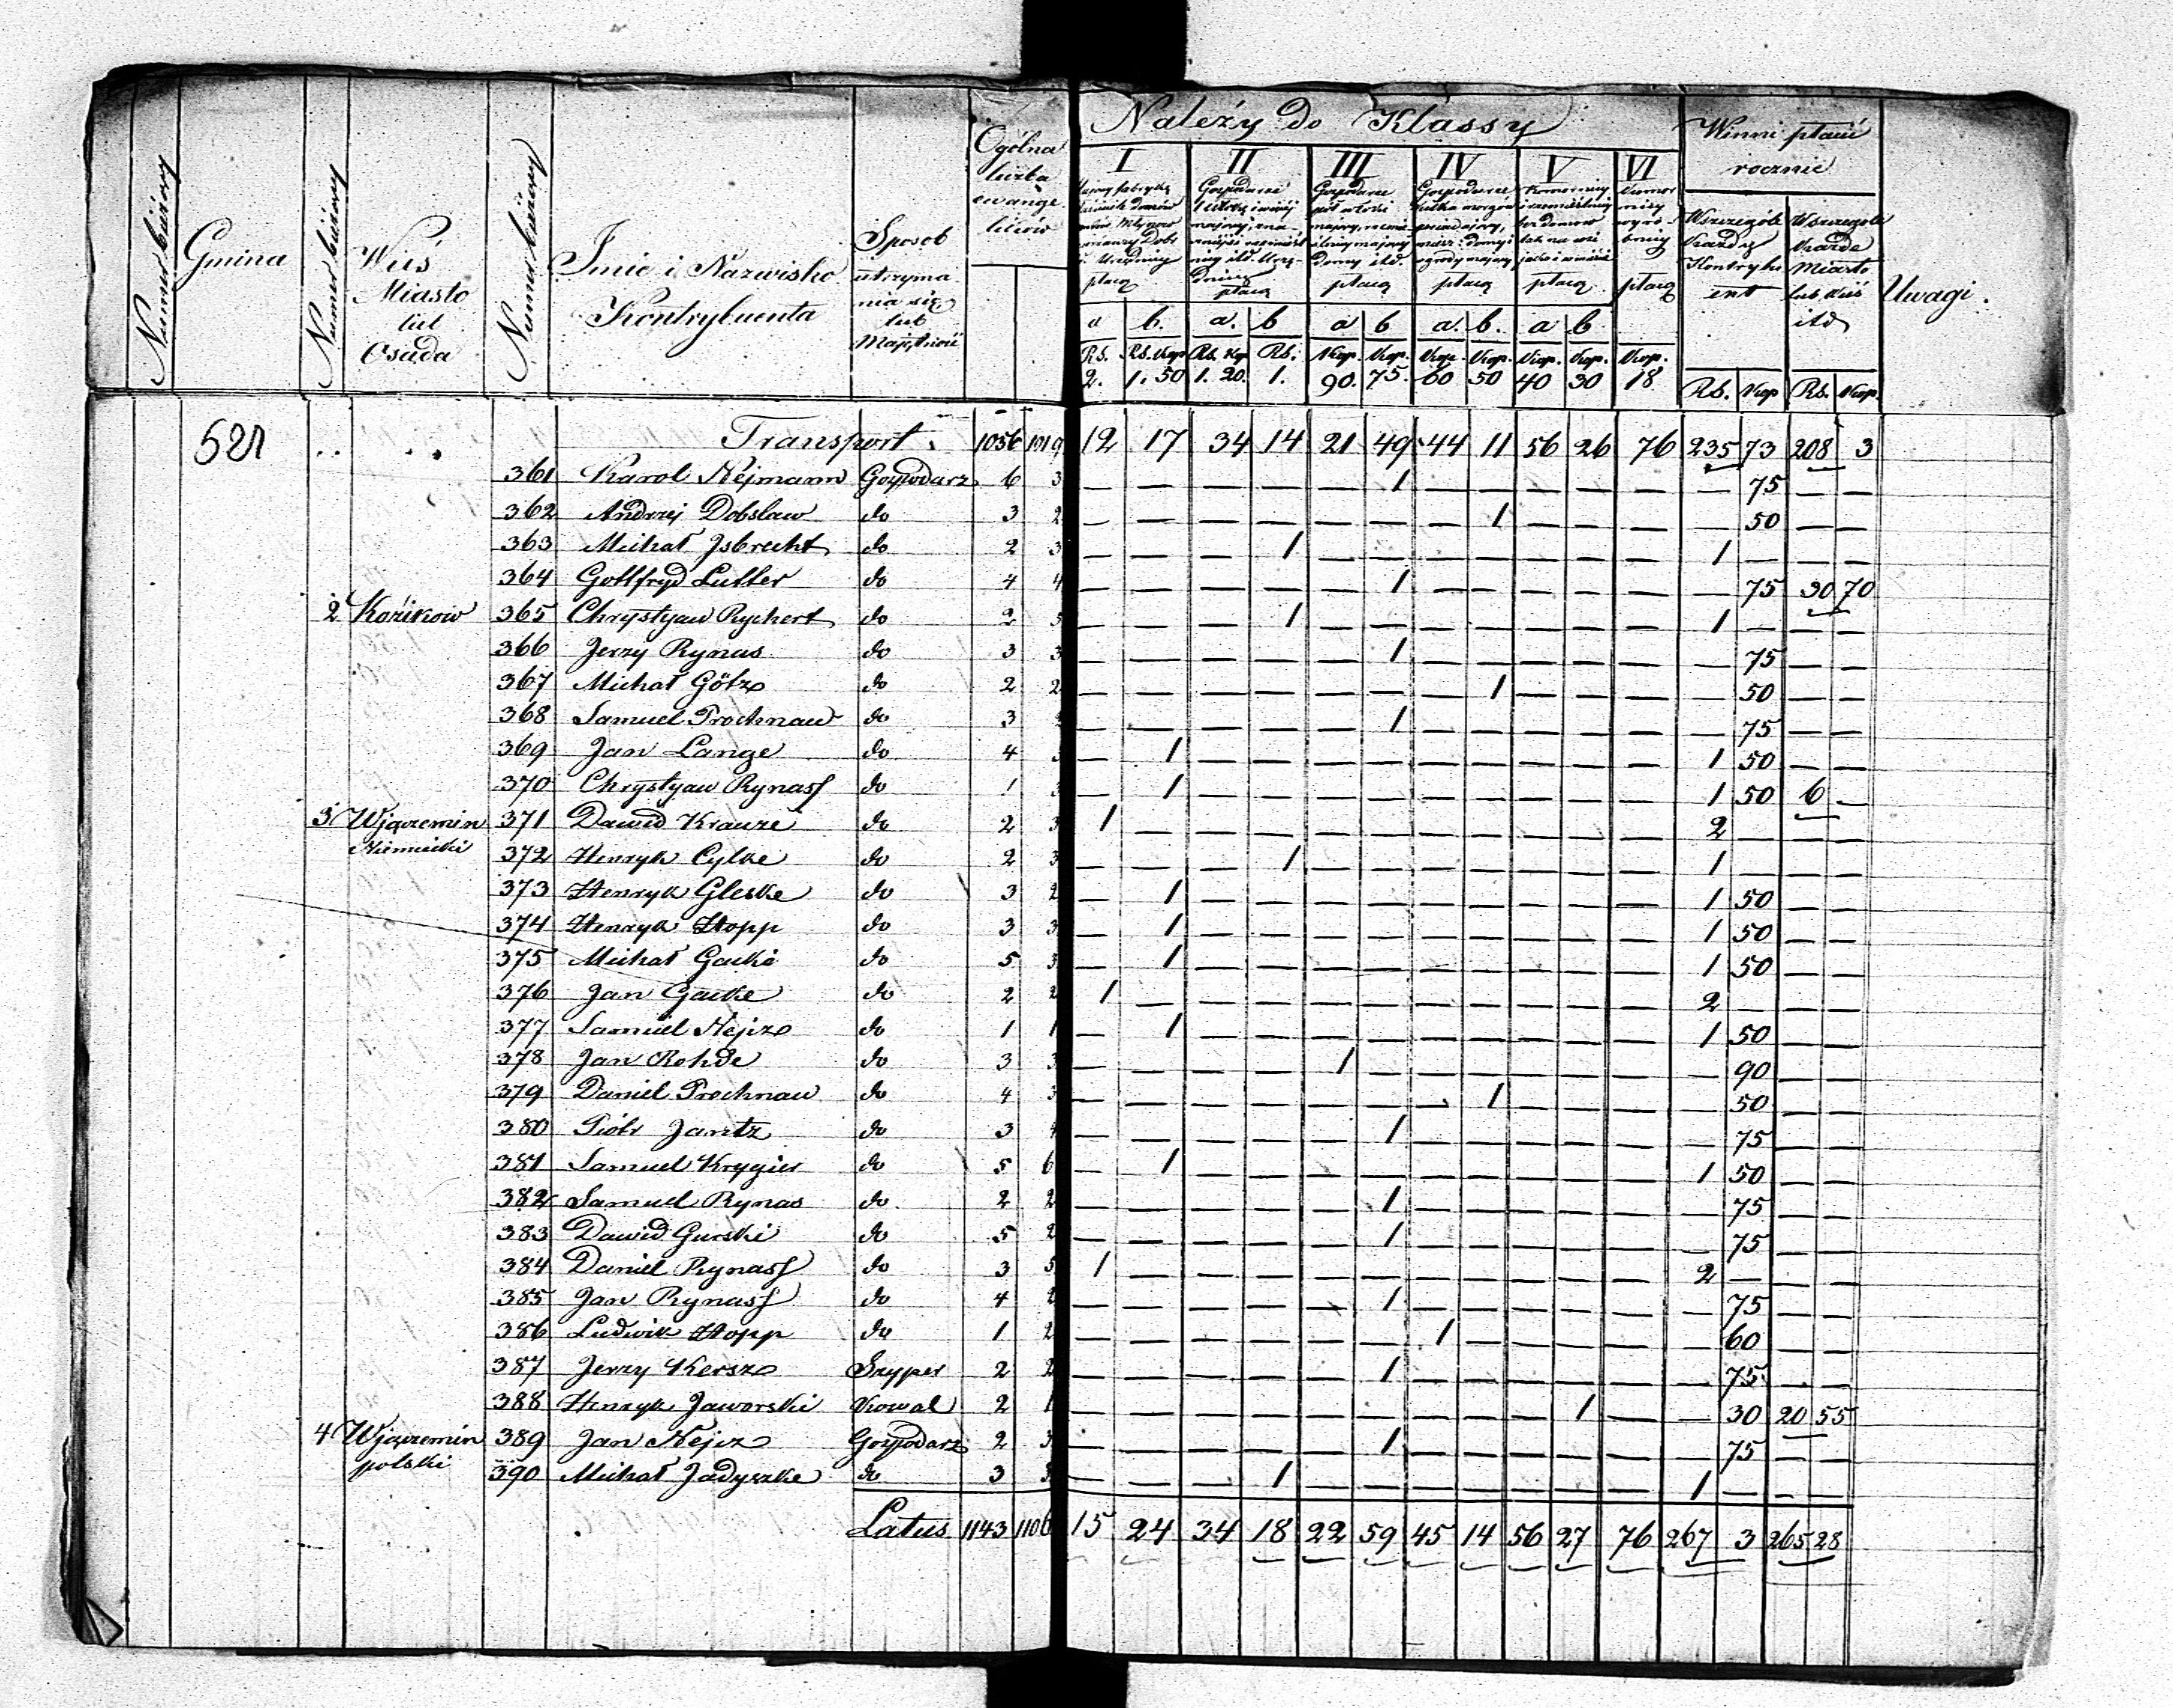 Numer bieżący
Gmina
Numer bieżący
Wieś Miasto lub Osada
Numer bieżący
Imie i Nazwisko Kontrybuenta
Sposob utrzymania się lub Majętność
Ogólna liczba ewangelików
Należy do Klassy
I II III IV V VI
płacą płacą płacą płacą płacą płacą
a b. a. b a b a. b. a b
Rs. Rs. Kop Rs. Kop Rs. Kop. Kop. Kop. Kop. Kop. Kop. Kop.
2. 1. 50 1. 20. 1. 90. 75. 60 50 40 30 18
Winni płacić rocznie
Wszczególe każdy Kontrybuent
Wszczególe każde Miasto lub Wieś itd
Rs. Kop Rs. Kop.
Uwagi.
521 Transport. 1056 1019 12 17 34 14 21 49 44 11 56 26 76 235 73 208 3
361 Karol Nejmann Gospodarz 6 3 — — — — — 1 — — — — — — 75 — —
362 Andrzej Dobslaw do 3 2 — — — — — — — 1 — — — — 50 — —
363 Michał Jsbrecht do 2 3 — — — 1 — — — — — — — 1 — — —
364 Gottfryd Lutter do 4 4 — — — — — 1 — — — — — — 75 30 70
2 Kozikow 365 Chrystyan Rychert do 2 5 — — — 1 — — — — — — — 1 — — —
366 Jerzy Rynas do 3 3 — — — — — 1 — — — — — — 75 — —
367 Michał Götz do 2 2 — — — — — — — 1 — — — — 50 — —
368 Samuel Prochnau do 3 — — — — — 1 — — — — — — 75 — —
369 Jan Lange do 4 — 1 — — — — — — — — — 1 50 — —
370 Chrystyan Rynass do 1 3 — 1 — — — — — — — — — 1 50 6 —
3 Wjączemin Niemiecki 371 Dawid Krauze do 2 3 1 — — — — — — — — — — 2 — — —
372 Henryk Cylke do 2 3 — — — 1 — — — — — — — 1 — — —
373 Henryk Gleske do 3 2 — 1 — — — — — — — — — 1 50 — —
374 Henryk Hopp do 3 3 — 1 — — — — — — — — — 1 50 — —
375 Michał Gatki do 5 3 — 1 — — — — — — — — — 1 50 — —
376 Jan Gatke do 2 2 1 — — — — — — — — — — 2 — — —
377 Samuel Nejcz do 1 1 — 1 — — — — — — — — — 1 50 — —
378 Jan Rohde do 3 3 — — — — 1 — — — — — — — 90 — —
379 Daniel Prochnau do 4 3 — — — — — — — 1 — — — — 50 — —
380 Piótr Jantz do 3 4 — — — — — 1 — — — — — — 75 — —
381 Samuel Krygier do 5 6 — 1 — — — — — — — — — 1 50 — —
382 Samuel Rynas do 2 2 — — — — — 1 — — — — — — 75 — —
383 Dawid Gurski do 5 2 — — — — — 1 — — — — — — 75 — —
384 Daniel Rynass do 3 5 1 — — — — — — — — — — 2 — — —
385 Jan Rynass do 4 2 — — — — — 1 — — — — — — 75 — —
386 Ludwik Hopp do 1 2 — — — — — — 1 — — — — — 60 — —
387 Jerzy Kersz Szyper 2 2 — — — — — 1 — — — — — — 75 — —
388 Henryk Jaworski Kowal 2 1 — — — — — — — — — 1 — — 30 20 55
4 Wjączemin polski 389 Jan Nejcz Gospodarz 2 3 — — — — — 1 — — — — — — 75 — —
390 Michał Jadyszke do 3 3 — — — 1 — — — — — — — 1 — — —
Latus 1143 1106 15 24 34 18 22 59 45 14 56 27 76 267 3 265 28